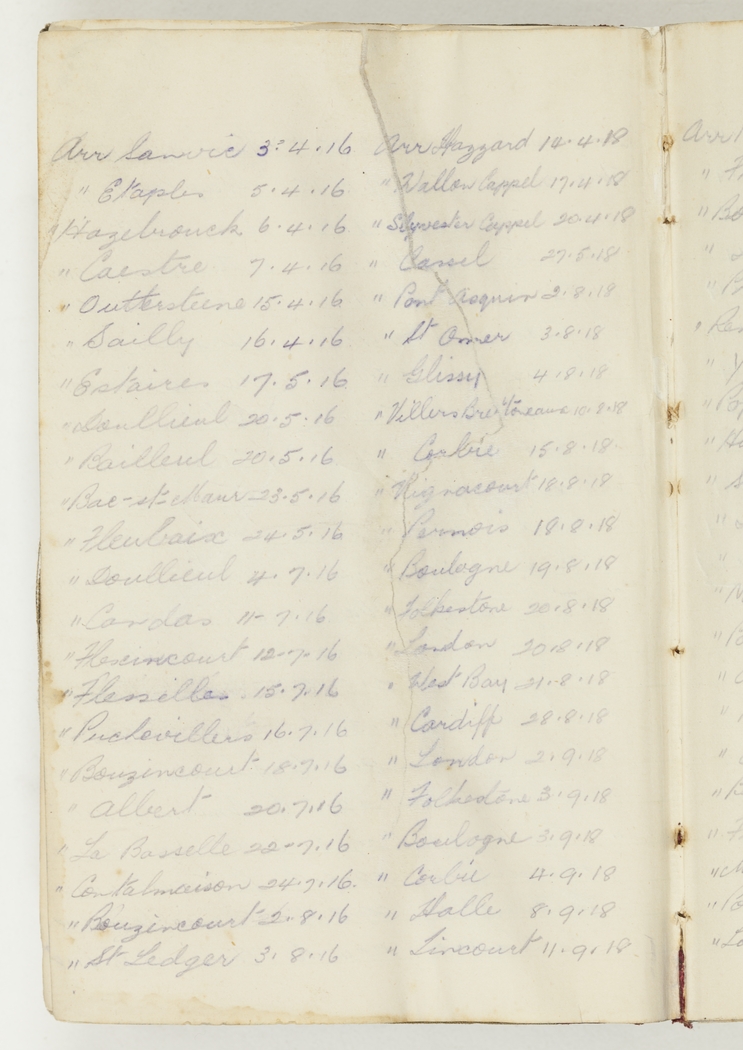 Arr Sanvic 3.4.16
" Etaples 5.4.16
" Hazebrouck 6.4.16
" Caestre 7.4.16
" Outtersteene 15.4.16
" Sailly 16.4.16
" Estaires 17.5.16
" Doullieul 20.5.16
" Bailleul 20.5.16
" Bac-st-Maur 23.5.16
" Fleurbaix 24.5.16
" Doullieul 4.7.16
" Candas 11-7.16
" Flexincourt 12-7-16
" Flesselles 15.7.16
" Puchevillers 16.7.16
" Bouzincourt 18.7.16
" Albert 20.7.16
" La Basselle 22-7.16
" Contalmaison 24.7.16.
" Bouzincourt 2.8.16
" St Ledger 3.8.16
Arr Hazzard 14.4.18
" Wallon Cappel 17.4.18
" Slyvester Cappel 20.4.18
" Cassel 27.5.18
" Pont Asquin 2.8.18
" St Omer 3.8.18
" Glissy 4.8.18
" Villers Bretoneaux 10.8.18
" Corbie 15.8.18
" Vignacourt 18.8.18
" Pernois 18.8.18
" Boulogne 19.8.18
" Folkestone 20.8.18
" London 20.8.18
" West Bay 21.8.18
" Cardiff 28.8.18
" London 2.9.18
" Folkestone 3.9.18
" Boulogne 3.9.18
" Corbie 4.9.18
" Halle 8.9.18
" Lincourt 11.9.18